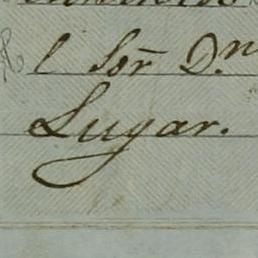 l Sor̃ D.n
Lugar.